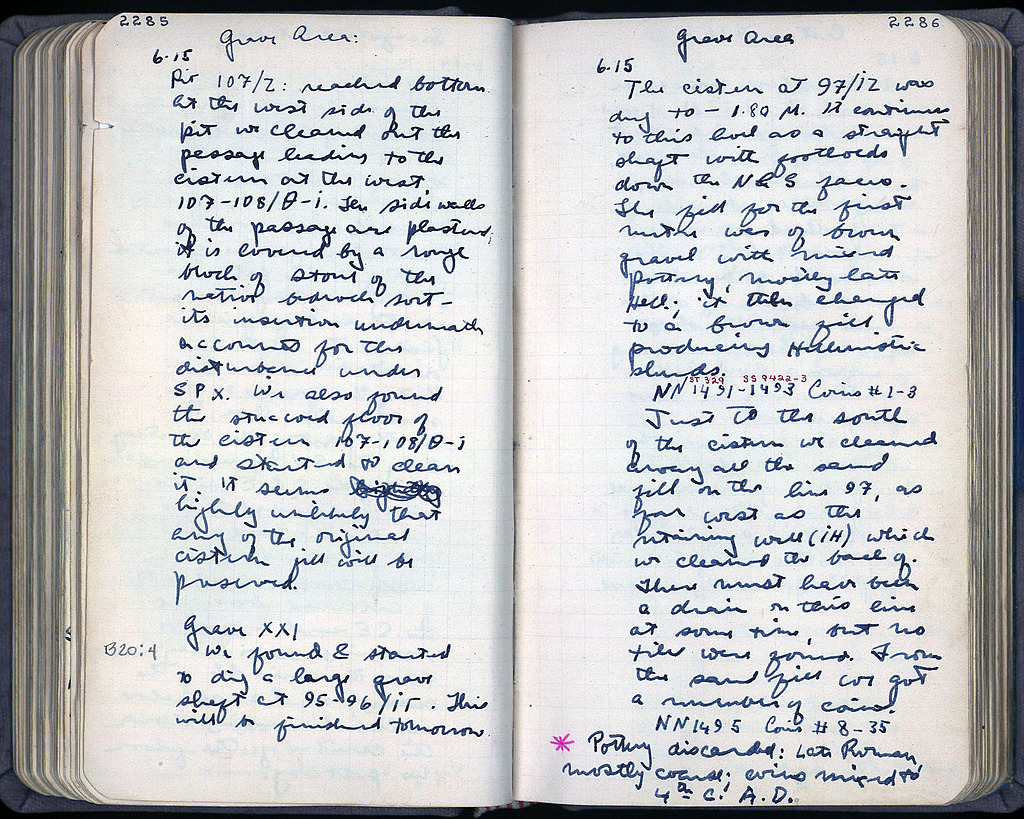 2285
Grave Area:
6.15
Pit 107/Z: reached bottom.
At the west side of the
pit we cleaned out the
passage leading to the
cistern at the west,
107-108/Θ-i. The side walls
of the passage are plastered;
it is covered by a
block of stone of the
native bedrock sort –
its insertion underneath
accounts for the
disturbance under
SPX. We also found
the stuccoed floor of
the cistern 107-108/Θ-i
and started to clean
it. It seems
highly unlikely that
any of the original
cistern fill will be
preserved.
Grave XXI
B20:4
We found & started
to dig a large grave
shaft at 95-96/. This
will be finished tomorrow.
2286
Grave Area
6.15
The cistern at 97/iZ was
dug to – 1.80 M. It continues
to this level as a straight
shaft with footholds
down the N & S faces.
The fill for the first
metre was of brown
gravel with mixed
pottery, mostly late
Hell; it then changed
to a brown fill
producing Hellenistic
sherds.
ST 329 SS 9422-3
NN 1491-1493 Coins # 1-3
Just to the south
of the cistern we cleaned
away all the sand
fill on the line 97, as
far west as the
retaining wall (iH) which
we cleaned the back of.
There must have been
a drain on this line
at some time, but no
tiles were found. From
the sand fill we got
a number of coins.
NN1495 Coins # 8-35
* Pottery discarded: Late Roman,
mostly coarse; coins mixed to
4th C. A.D.